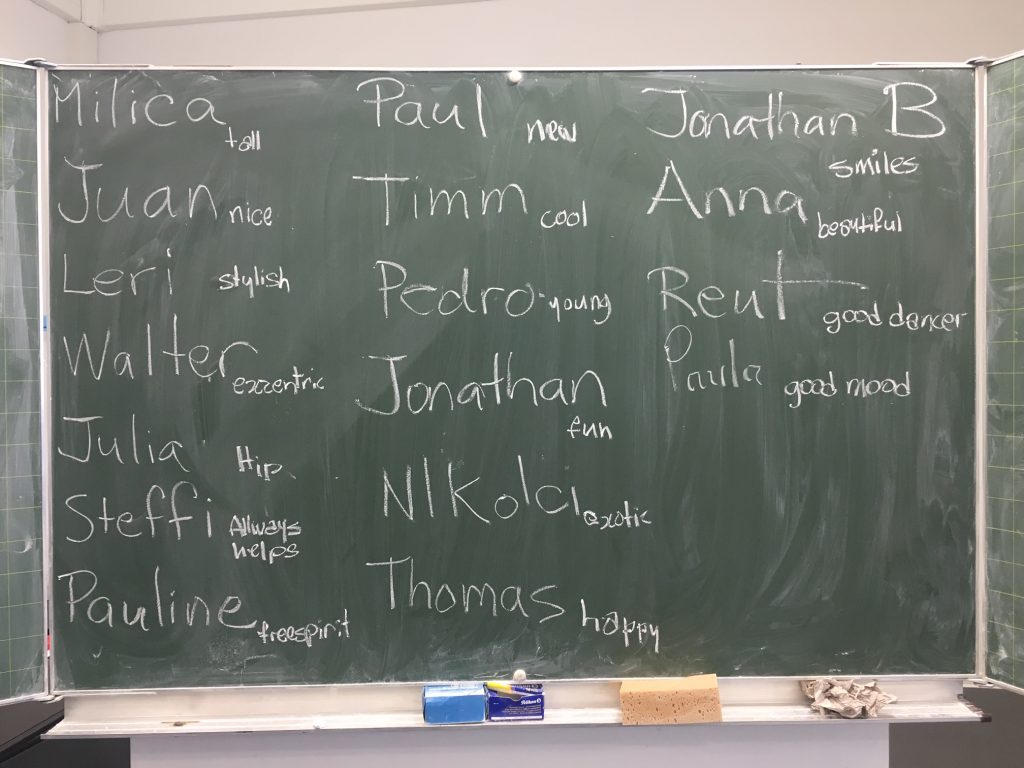 Milica
tall
Juan nice
Leri stylish
Walter
exzentric
Julia Hip
Steffi Allways
helps
Pauline
freespirit
Paul new
Timm cool
Pedro - young
Jonathan
fun
NIKolcl exotic
Thomas happy
Jonathan B
smiles
Anna
beautiful
Reut good dancer
Paula good mood
Pelikan